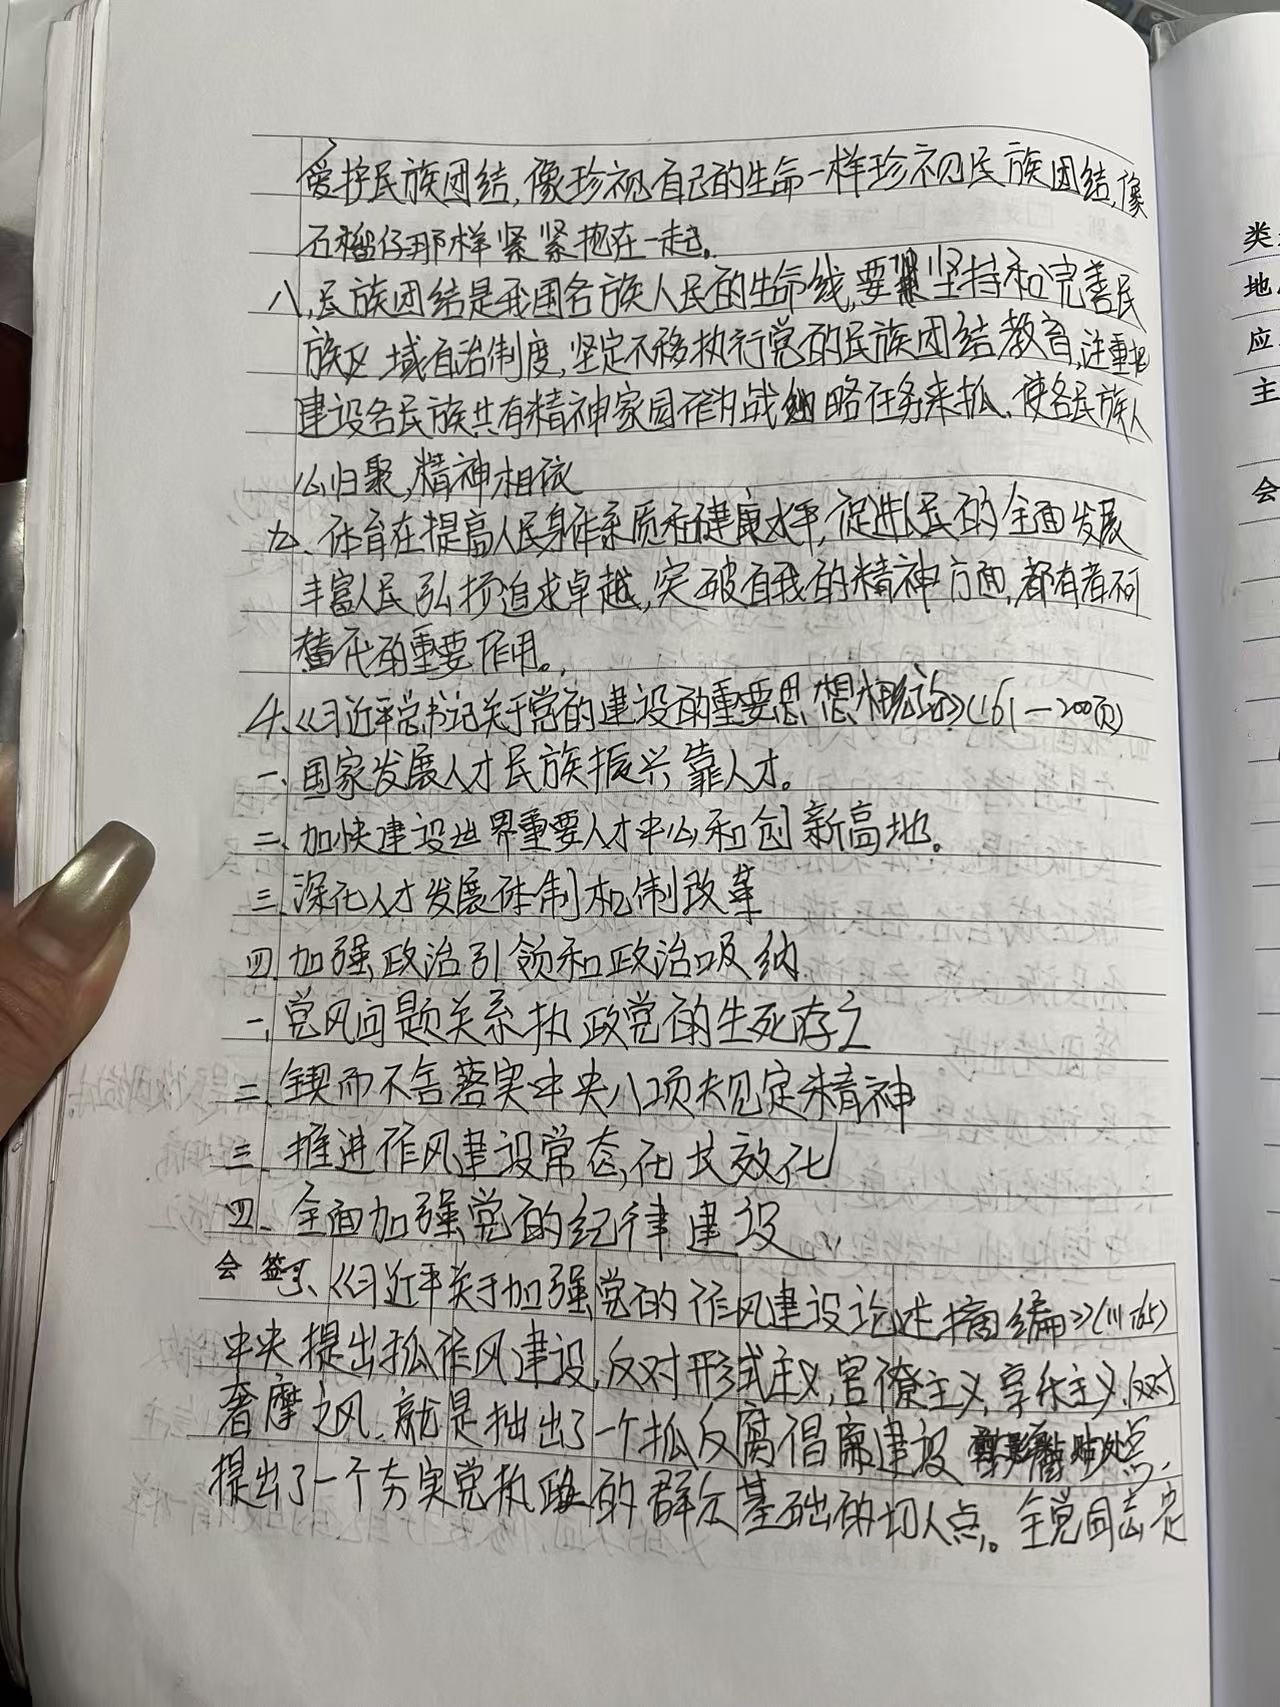 爱护民族团结,像珍视自己的生命一样珍视民族团结,像
石榴仔那样紧紧抱在一起。
八、民族团结是我国各族人民的生命线,要坚持和完善民
族区域自治制度,坚定不移执行党的民族团结教育,注重把
建设各民族共有精神家园作为战略任务来抓、使各民族人
心归聚,精神相依
九、体育在提高人民身体素质和健康水平,促进人民的全面发展
丰富人民弘扬追求卓越,突破自我的精神方面,都有着不可
替代的重要作用。
4.《习近平总书记关于党的建设的重要思想概论》(161—200页)
一、国家发展人才民族振兴靠人才。
二、加快建设世界重要人才中心和创新高地。
三、深化人才发展体制机制改革
四、加强政治引领和政治吸纳
一、党风问题关系执政党的生死存亡
二、锲而不舍落实中央八项规定精神
三、推进作风建设常态化长效化
四、全面加强党的纪律建设
会 签
5、《习近平关于加强党的作风建设论述摘编》
中央提出抓作风建设,反对形式主义,官僚主义,享乐主义,反对
奢靡之风,就是提出了一个抓反腐倡廉建设
提出了一个夯实党执政的群众基础的切入点。全党同志定
类
地
应
主
会